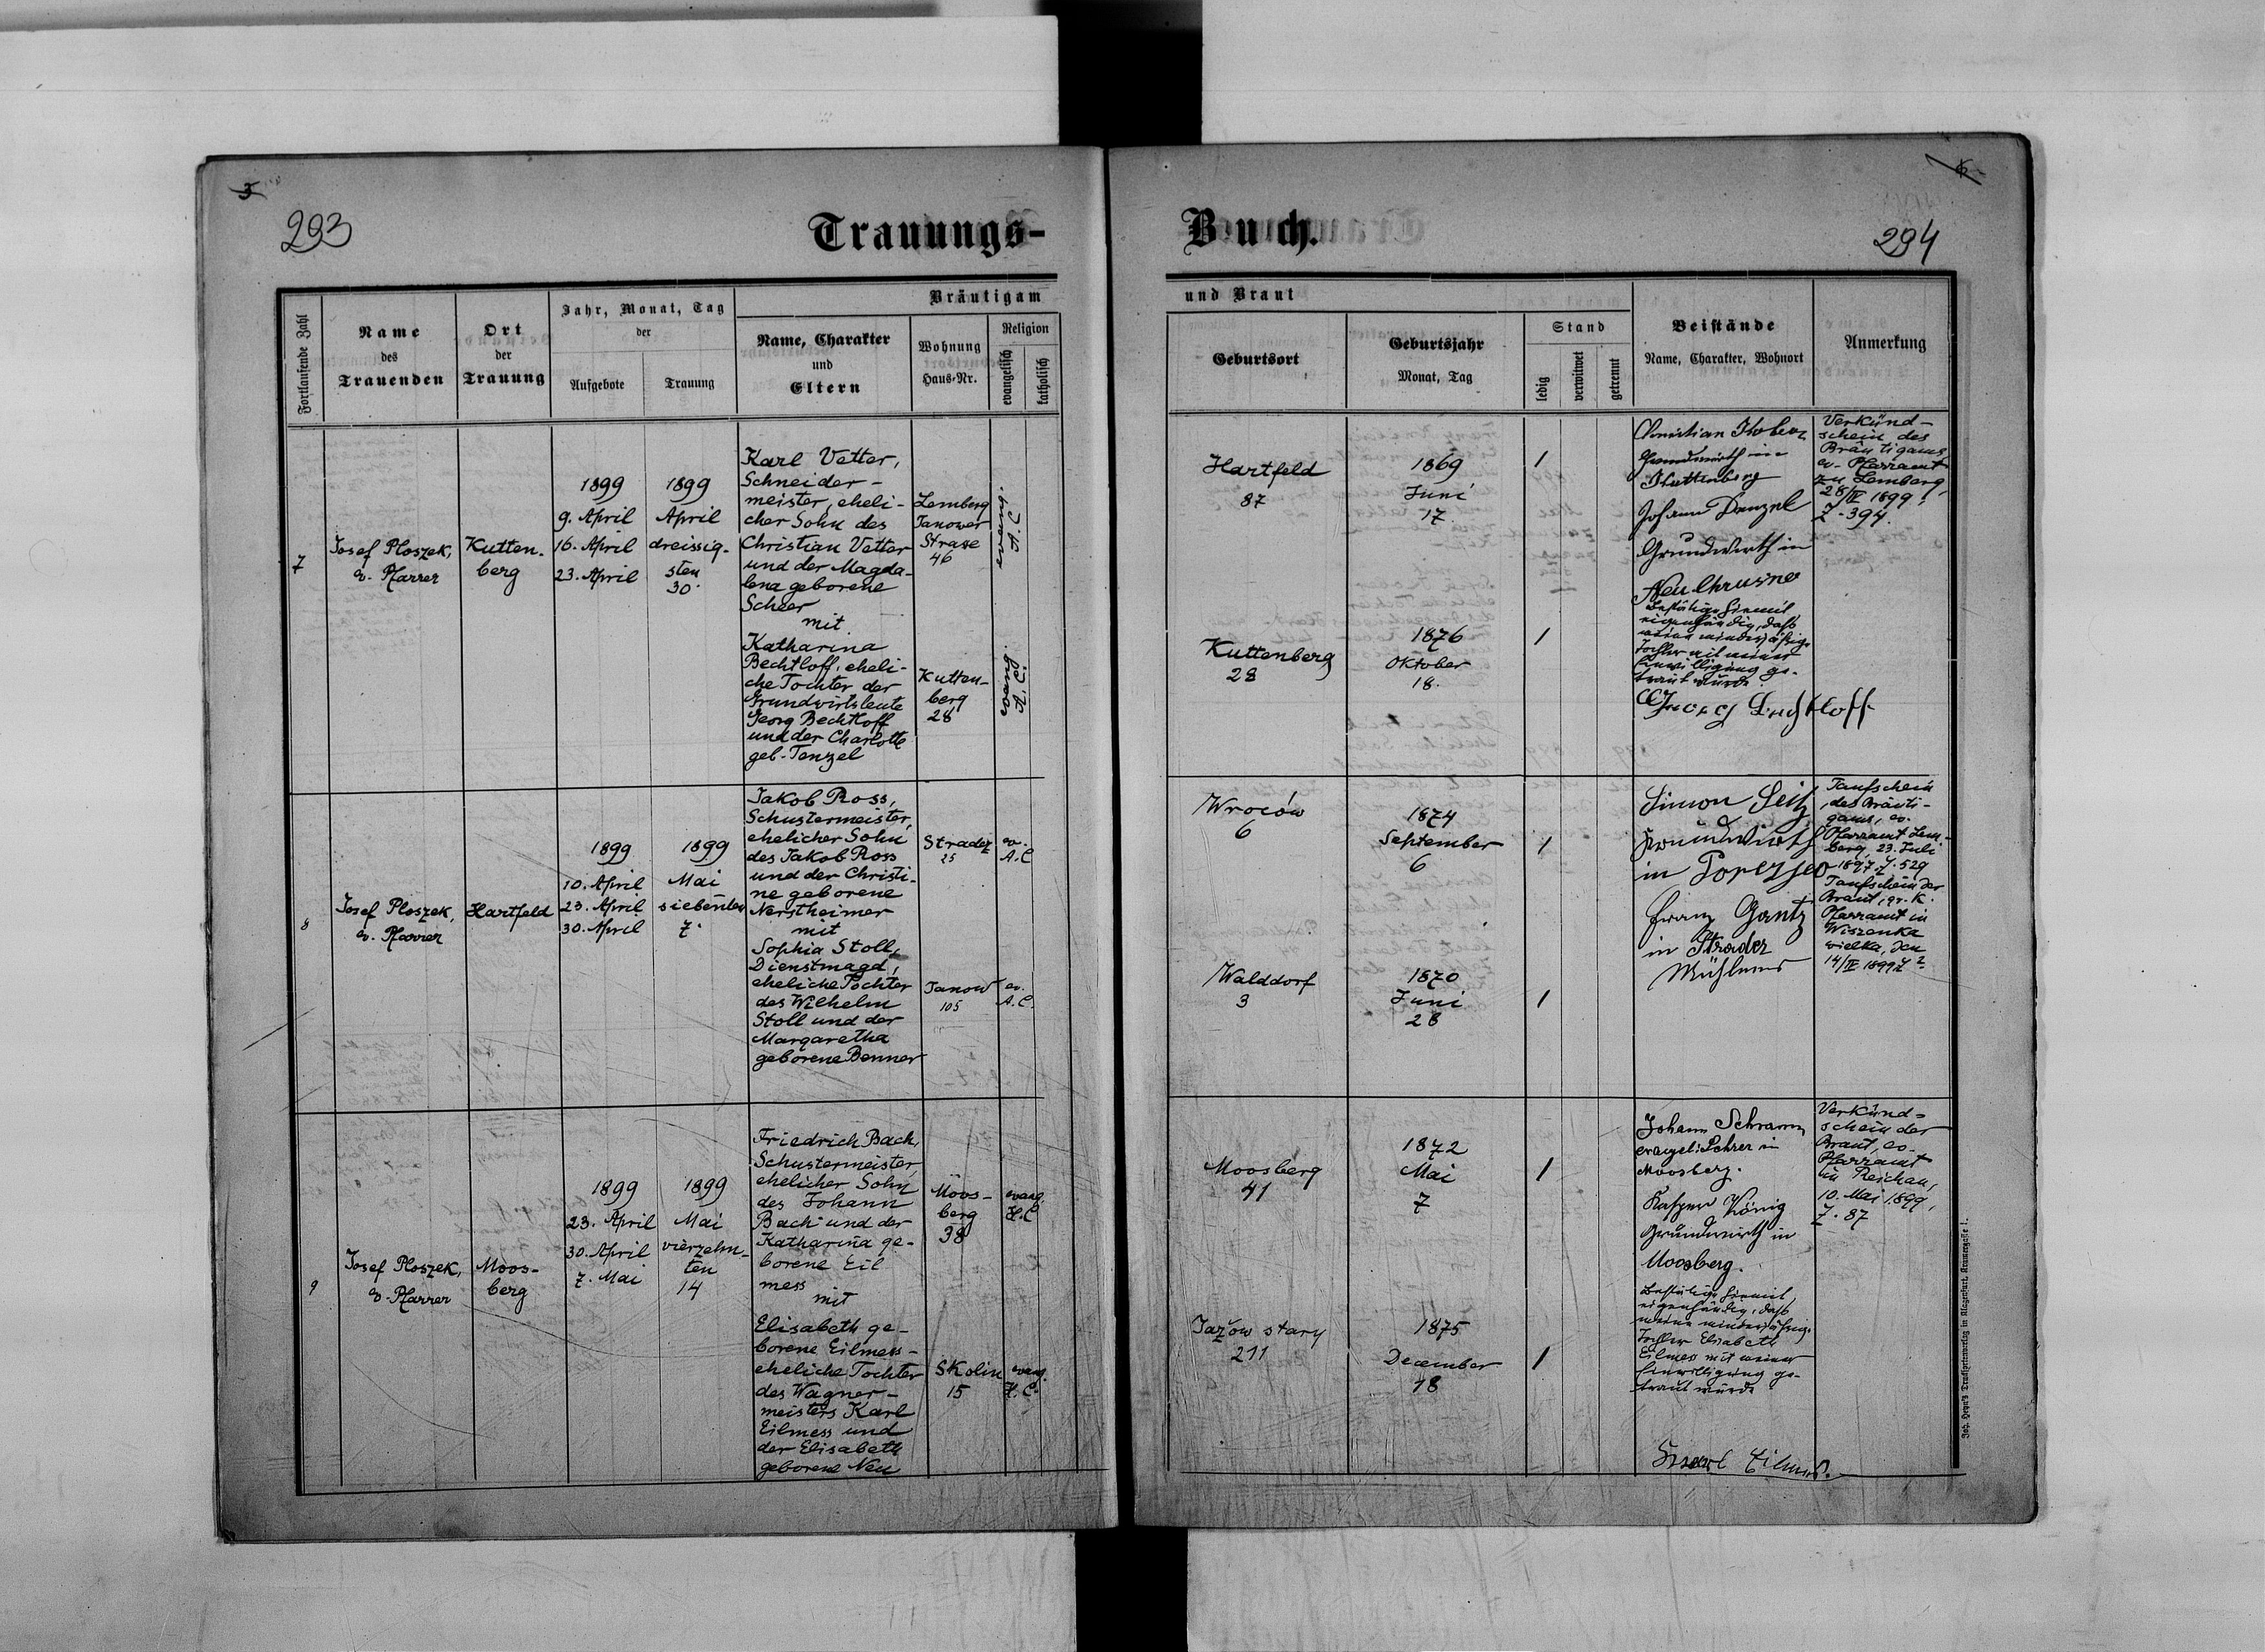 5
293
Trauungs-
Fortlaufende Zahl
Name
des
Trauenden
Ort
der
Trauung
Jahr, Monat, Tag
der
Aufgebote
Trauung
Bräutigam
Name, Charakter
und
Eltern
Wohnung
Haus-Nr.
Religion
evangelisch
katholisch
7
Josef Ploszek,
ev. Pfarrer
Kutten-
berg
1899
9. April
16. April
23. April
1899
April
dreissig-
sten
30.
Karl Vetter,
Schneider-
meister, eheli-
cher Sohn des
Christian Vetter
und der Magda-
lena geborene
Scheer
mit
Katharina
Bechtloff, eheli-
che Tochter der
Grundwirtsleute
Georg Bechtloff
und der Charlotte
geb. Tenzel
Lemberg
Janower
Strasse
46
evang.
A. C.
Kutten-
berg
28
evang.
A. C.
8
Josef Ploszek,
ev. Pfarrer
Hartfeld
1899
10. April
23. April
30. April
1899
Mai
siebenten
7.
Jakob Ross,
Schustermeister,
ehelicher Sohn
des Jakob Ross
und der Christi-
ne geborene
Nerstheimer
mit
Sophia Stoll,
Dienstmagd,
eheliche Tochter
des Wilhelm
Stoll und der
Margaretha
geborene Benner
Stradez
25
ev.
A. C
Janow
105
ev.
A. C.
9
Josef Ploszek,
ev. Pfarrer
Moos-
berg
1899
23. April
30. April
7. Mai
1899
Mai
vierzehn-
ten
14
Friedrich Bach,
Schustermeister,
ehelicher Sohn
des Johann
Bach und der
Katharina ge-
borene Eil
mess
mit
Elisabeth ge-
borene Eilmess-
eheliche Tochter
des Wagner-
meisters Karl
Eilmess und
der Elisabeth
geborene Neu
Moos-
berg
38
evang.
H. C
Skolin
15
evang.
H. C.
6
294
Buch.
und Braut
Geburtsort
Geburtsjahr
Monat, Tag
Stand
ledig
verwitwet
getrennt
Beistände
Name, Charakter, Wohnort
Anmerkung
Hartfeld
87
1869
Juni
17.
/
Kuttenberg
28
1876
Oktober
18.
/
Christian
Grundwirth in
Kuttenberg
Johann Denzel
Grundwirth in
Neu Chrusno
Bestätige hiermit
eigenhändig, daß
meine minderjährige
Tochter mit meiner
Einwilligung ge-
traut wurde.
Georg Bechtloff
Verkünd-
schein des
Bräutigams,
ev. Pfarramt
zu Lemberg,
28/IV 1899,
Z. 394.
Wroców
6
1874
September
6
/
Walddorf
3
1870
Juni
28
/
Simon Seitz
Grundwirth
in Porezjeo
Franz Gantz
in Strader
Taufschein
des Bräuti-
gams, ev.
Pfarramt Lem-
berg, 23. Juli
1897 Z. 529
Taufschein der
Braut, gr. k.
Pfarramt in
Wiszenka
wielka, den
14/IV 1899 Z ?
Moosberg
41
1872
Mai
7
/
Jažow stary
211
1875
December
18
/
Johann Schramm
evangeli. Lehrer in
Moosberg.
Kasper König
Grundwirth in
Moosberg.
Bestätige hiermit,
eigenhändig, daß
meine minderjährige
Tochter Elisabeth
Eilmess mit meiner
Einwilligung ge-
traut wurde
Karl Eilmess.
Verkünd-
schein der
Braut, ev.
Pfarramt
in Reichau,
10. Mai 1899,
Z. 87
Joh. Heyn's Drucksortenverlag in Klagenfurt, Kramergasse 1.